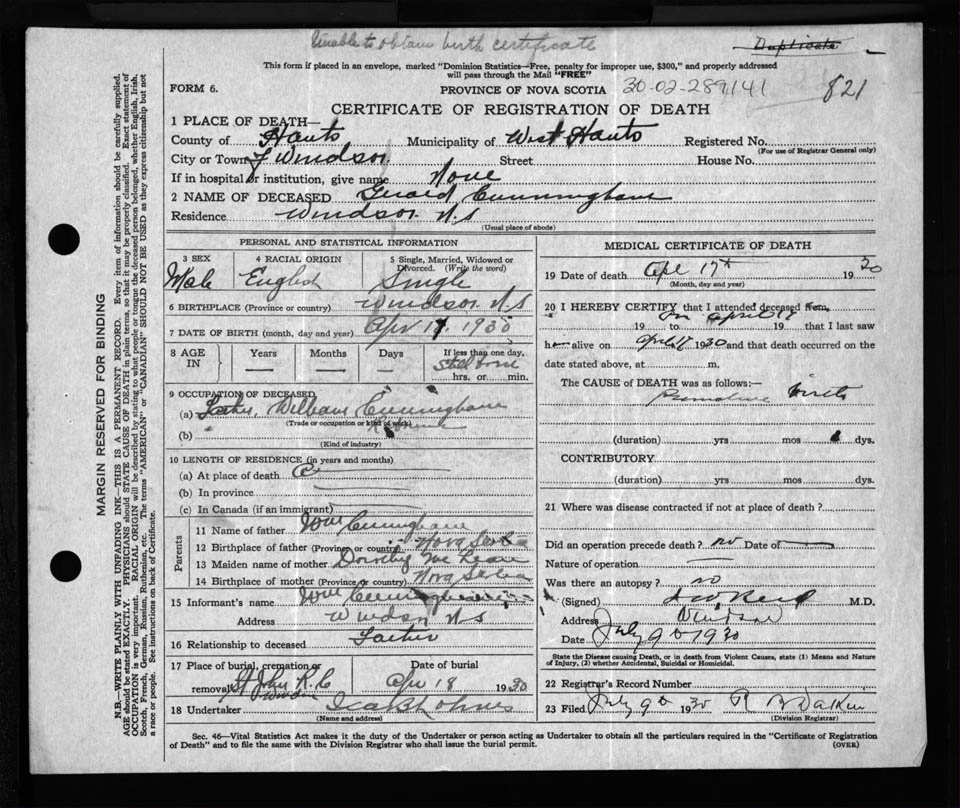 Unable to obtain birth certificate
Duplicate
This form if placed in an envelope, marked "Dominion Statistics—Free, penalty for improper use, $300," and properly addressed
will pass through the Mail "FREE"
FORM 6.
PROVINCE OF NOVA SCOTIA
30-02-289141
821
CERTIFICATE OF REGISTRATION OF DEATH
1 PLACE OF DEATH—
County of Hants Municipality of West Hants Registered No.
(For use of Registrar General only)
City or Town of Windsor Street House No.
If in hospital or institution, give name None
2 NAME OF DECEASED Cunningham
Residence Windsor N.S
(Usual place of abode)
PERSONAL AND STATISTICAL INFORMATION
3 SEX 4 RACIAL ORIGIN 5 Single, Married, Widowed or
Divorced. (Write the word)
Male English Single
6 BIRTHPLACE (Province or country) Windsor N.S
7 DATE OF BIRTH (month, day and year) Apr 17 1930
8 AGE IN Years Months Days If less than one day,
Still born
hrs. or min.
9 OCCUPATION OF DECEASED
(a) Father William Cunningham
(Trade or occupation or kind of work)
(b)
(Kind of industry)
10 LENGTH OF RESIDENCE (in years and months)
(a) At place of death
(b) In province
(c) In Canada (if an immigrant)
Parents
11 Name of father Wm Cunningham
12 Birthplace of father (Province or country) Nova Scotia
13 Maiden name of mother Dorothy
14 Birthplace of mother (Province or country) Nova Scotia
15 Informant's name Wm Cunningham
Address Windsor N.S
16 Relationship to deceased Father
17 Place of burial, cremation or
removal St John R.C
Windsor
Date of burial
Apr 18 1930
18 Undertaker
(Name and address)
MEDICAL CERTIFICATE OF DEATH
19 Date of death Apl 17th 1930
(Month, day and year)
20 I HEREBY CERTIFY that I attended deceased from
on April 17
19 to 19 that I last saw
h alive on April 17 1930 and that death occurred on the
date stated above, at m.
The CAUSE OF DEATH was as follows:—
Premature birth
(duration) yrs mos dys.
CONTRIBUTORY
(duration) yrs mos dys.
21 Where was disease contracted if not at place of death?
Did an operation precede death? no Date of
Nature of operation
Was there an autopsy? no
(Signed) M.D.
Address Windsor
Date July 9th 1930
State the Disease causing Death, or in death from Violent Causes, state (1) Means and Nature
of Injury, (2) whether Accidental, Suicidal or Homicidal.
22 Registrar's Record Number
23 Filed July 9th 1930
(Division Registrar)
Sec. 46—Vital Statistics Act makes it the duty of the Undertaker or person acting as Undertaker to obtain all the particulars required in the "Certificate of Registration
of Death" and to file the same with the Division Registrar who shall issue the burial permit.
(OVER)
MARGIN RESERVED FOR BINDING
N.B.—WRITE PLAINLY WITH UNFADING INK—THIS IS A PERMANENT RECORD. Every item of information should be carefully supplied.
AGE should be stated EXACTLY. PHYSICIANS should STATE CAUSE OF DEATH in plain terms, so that it may be properly classified. Exact statement of
OCCUPATION is very important. RACIAL ORIGIN will be described by stating to what people or tongue the deceased person belonged, whether English, Irish,
Scotch, French, German, Russian, Ruthenian, etc. The terms "AMERICAN" or "CANADIAN" SHOULD NOT BE USED as they express citizenship but not
a race or people. See instructions on back of Certificate.